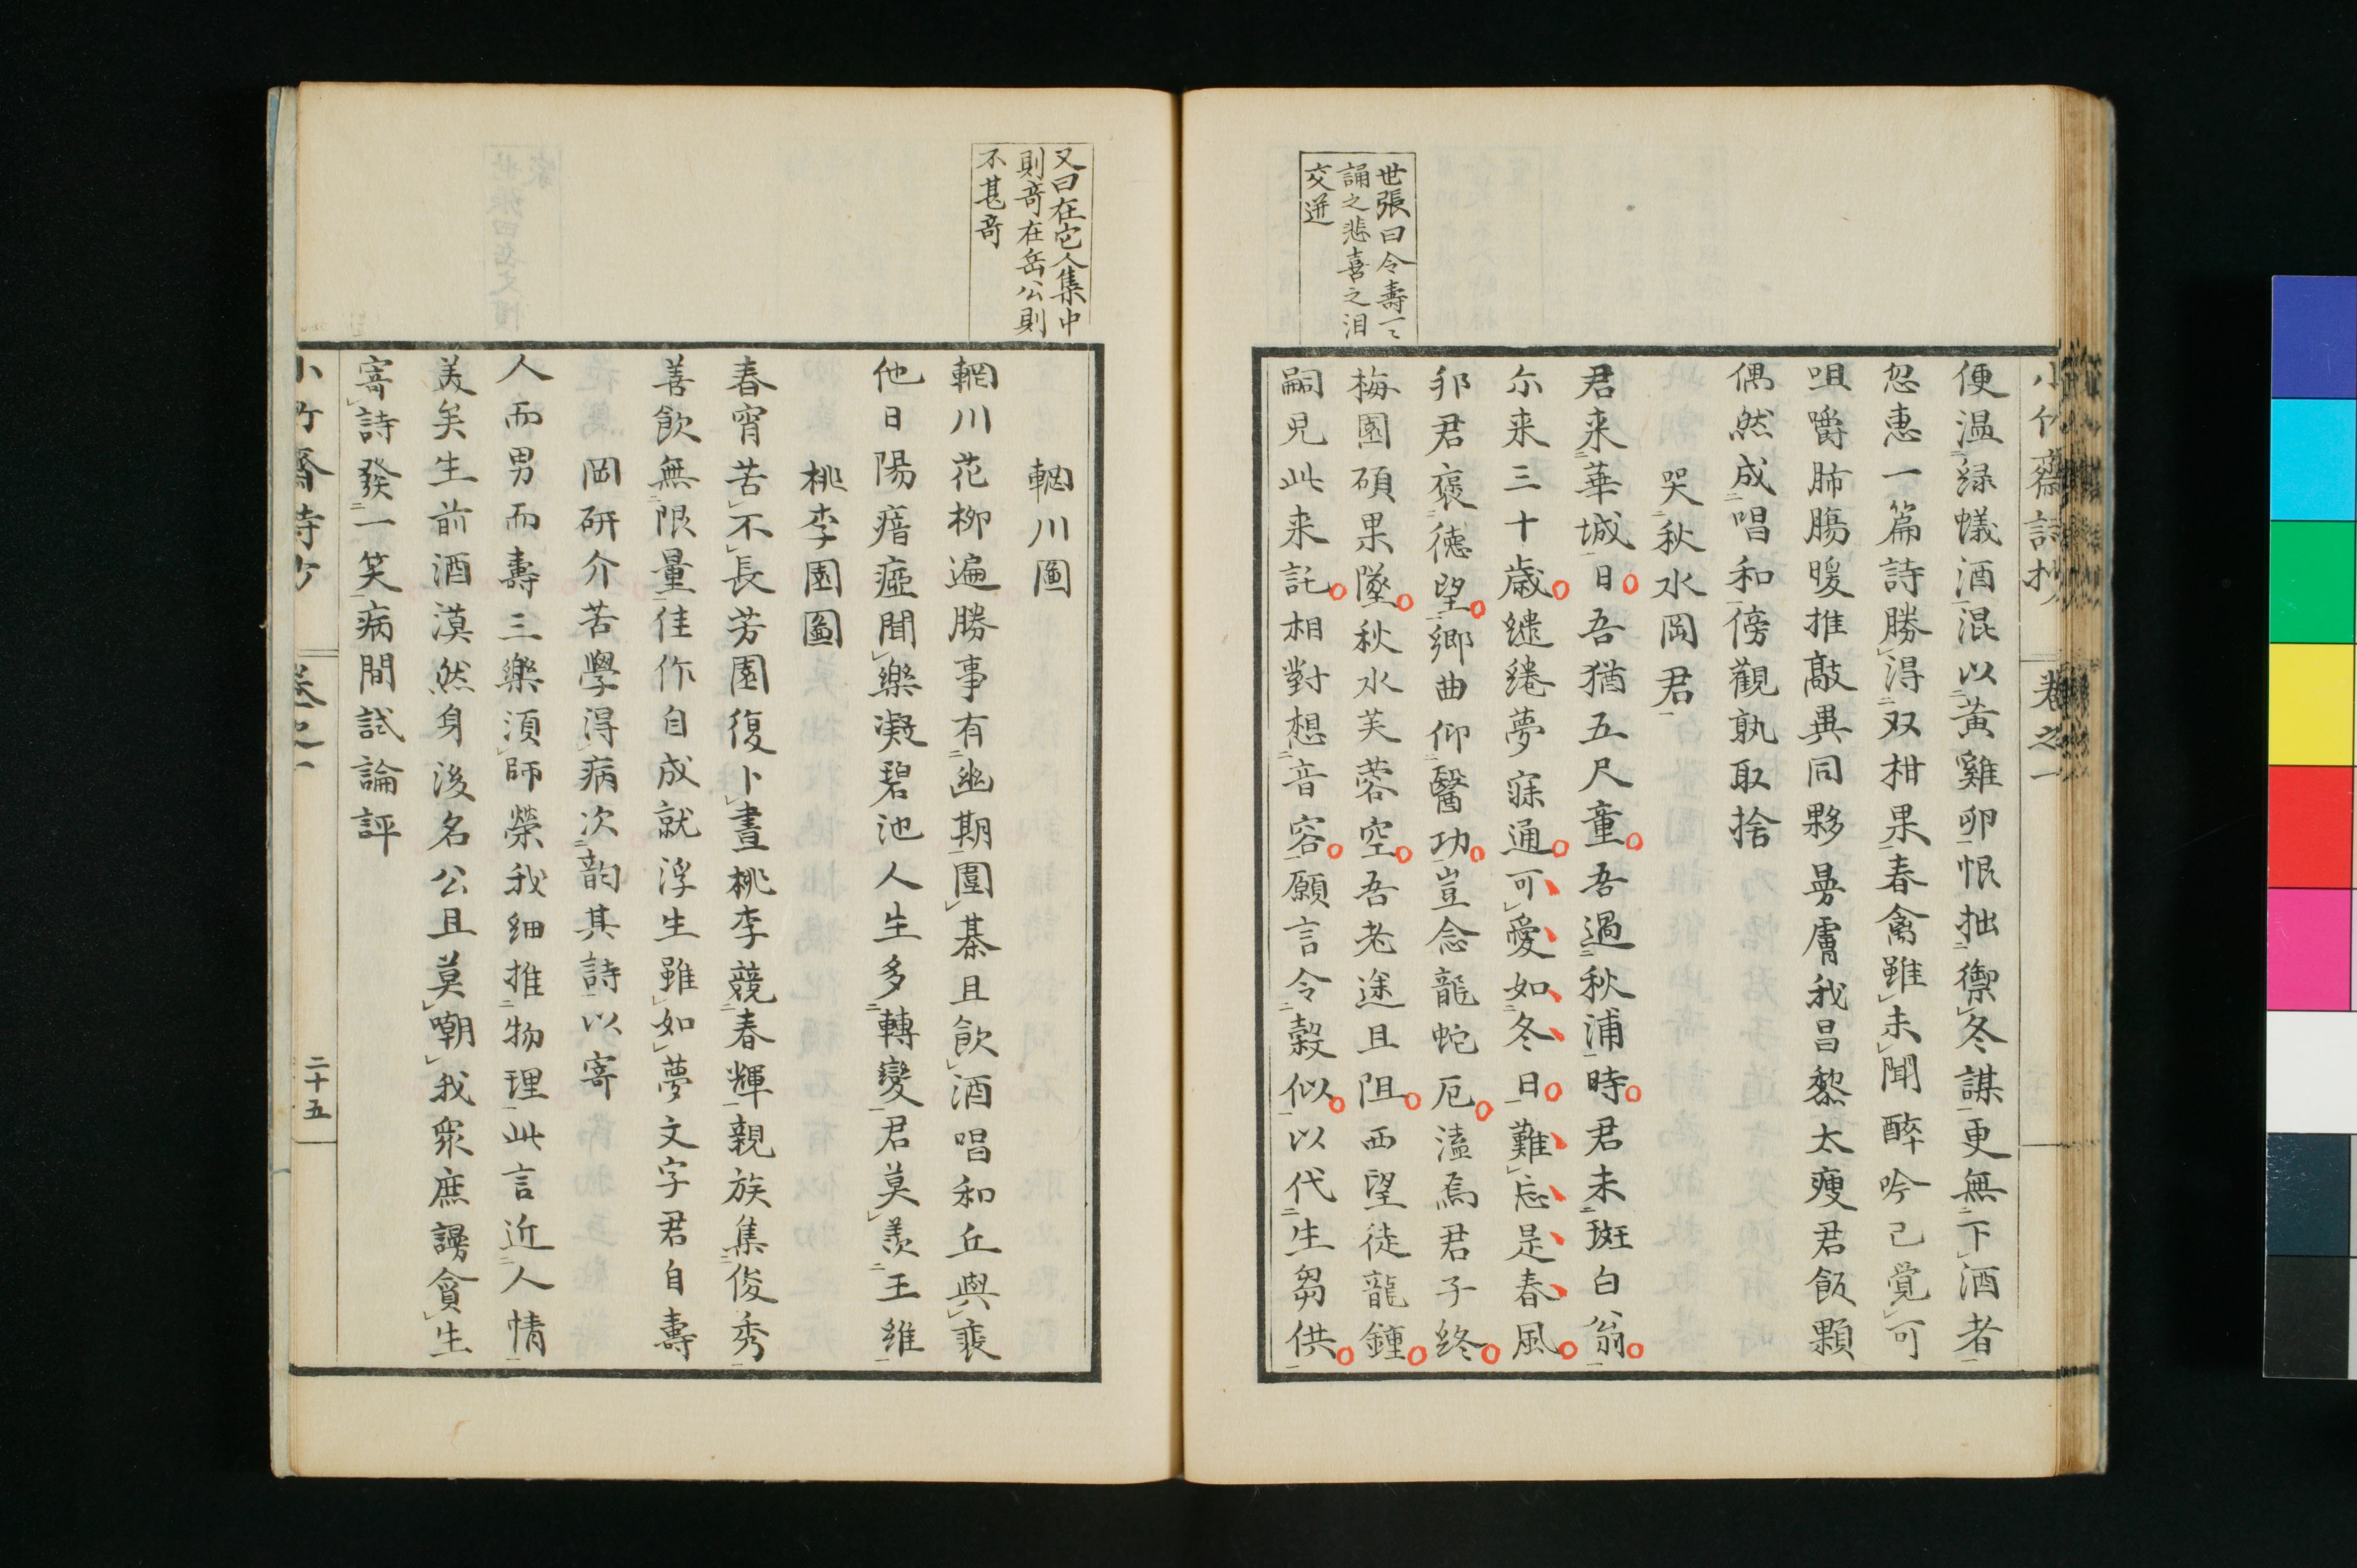 小竹齋詩抄 卷之一
世張曰令壽一〻
誦之悲喜之泪
交迸
便温緑蟻酒混以黄雞卵恨拙禦冬謀更無下酒者
忽惠一篇詩勝得双柑果春禽雖未聞醉吟已覚可
咀嚼肺腸暖推敲異同夥曷膚我昌黎太瘦君飯顆
偶然成唱和傍觀孰取捨
哭秋水岡君
君来華城日吾猶五尺童吾過秋浦時君未斑白翁
尓来三十歳繾綣夢寐通可愛如冬日難忘是春風
邦君褒徳望鄉曲仰醫功豈念龍蛇厄溘焉君子終
梅園碩果墜秋水芙蓉空吾老途且阻西望徒龍鍾
嗣児此来託相對想音容願言令穀似以代生芻供
又曰在它人集中
則竒在岳公則
不甚竒
輞川圖
輞川花柳遍勝事有幽期圍棊且飲酒唱和丘與裴
他日陽瘖瘂聞樂凝碧池人生多轉變君莫羨王維
桃李園圖
春宵苦不長芳園復卜晝桃李競春輝親族集俊秀
善飲無限量佳作自成就浮生雖如夢文字君自壽
岡研介苦學得病次韵其詩以寄
人而男而壽三樂須師榮我細推物理此言近人情
美矣生前酒漠然身後名公且莫嘲我衆庶謗貪生
寄詩發一笑病間試論評
小竹齋詩抄 卷之一 二十五